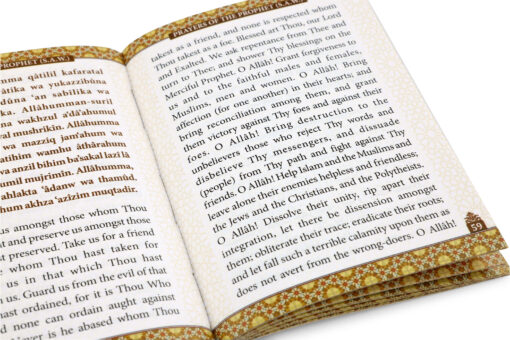 PROPHET (S.A.W.)
qâtilil kafaratal
tika wa yukazzibûna
dûna 'an sabilika wa
ka. Allâhumman-suril
wakhzul a'dâ'ahumul
mushrikin. Allâhumma
wa mazziq jam'ahum wa
atihim wamhu âthârahum
anzil bihim ba'sakal lazi lâ
qawmil mujrimin. Allâhumma,
ahlakta 'âdanw wa thamûd,
hum akhza 'azizim muqtadir.
us amongst those whom Thou
and preserve us amongst those
preserved. Take us for a friend
whom Thou hast taken for
us in that which Thou hast
us. Guard us from the evil of that
hast ordained, for it is Thou Who
and none can ordain aught against
Never is he abased whom Thou
PRAYERS OF THE PROPHET (S.A.W.)
takest as a friend, and none is respected whom
Thou takest as a foe. Blessed art Thou, our Lord
and Exalted. We ask repentance from Thee and
turn to Thee; and shower Thy blessings on the
Merciful Prophet. O Allâh! Grant forgiveness to
us and to the faithful males and females,
Muslims, men and women. O Allâh! Create
affection (for one another) in their hearts, and
bring reconciliation among them, and grant
them victory against Thy foes and against their
foes. O Allâh! Bring destruction to the
unbelievers those who reject Thy words and
disbelieve Thy messengers, and dissuade
(people) from Thy path and fight against Thy
friends. O Allâh! Help Islam and the Muslims and
leave alone their enemies helpless and friendless;
the Jews and the Christians, and the Polytheists.
O Allâh! Dissolve their unity, rip apart their
integration, let there be dissension amongst
them; obliterate their trace; eradicate their roots;
and let fall such a terrible calamity upon them as
does not avert from the wrong-doers. O Allâh!
59